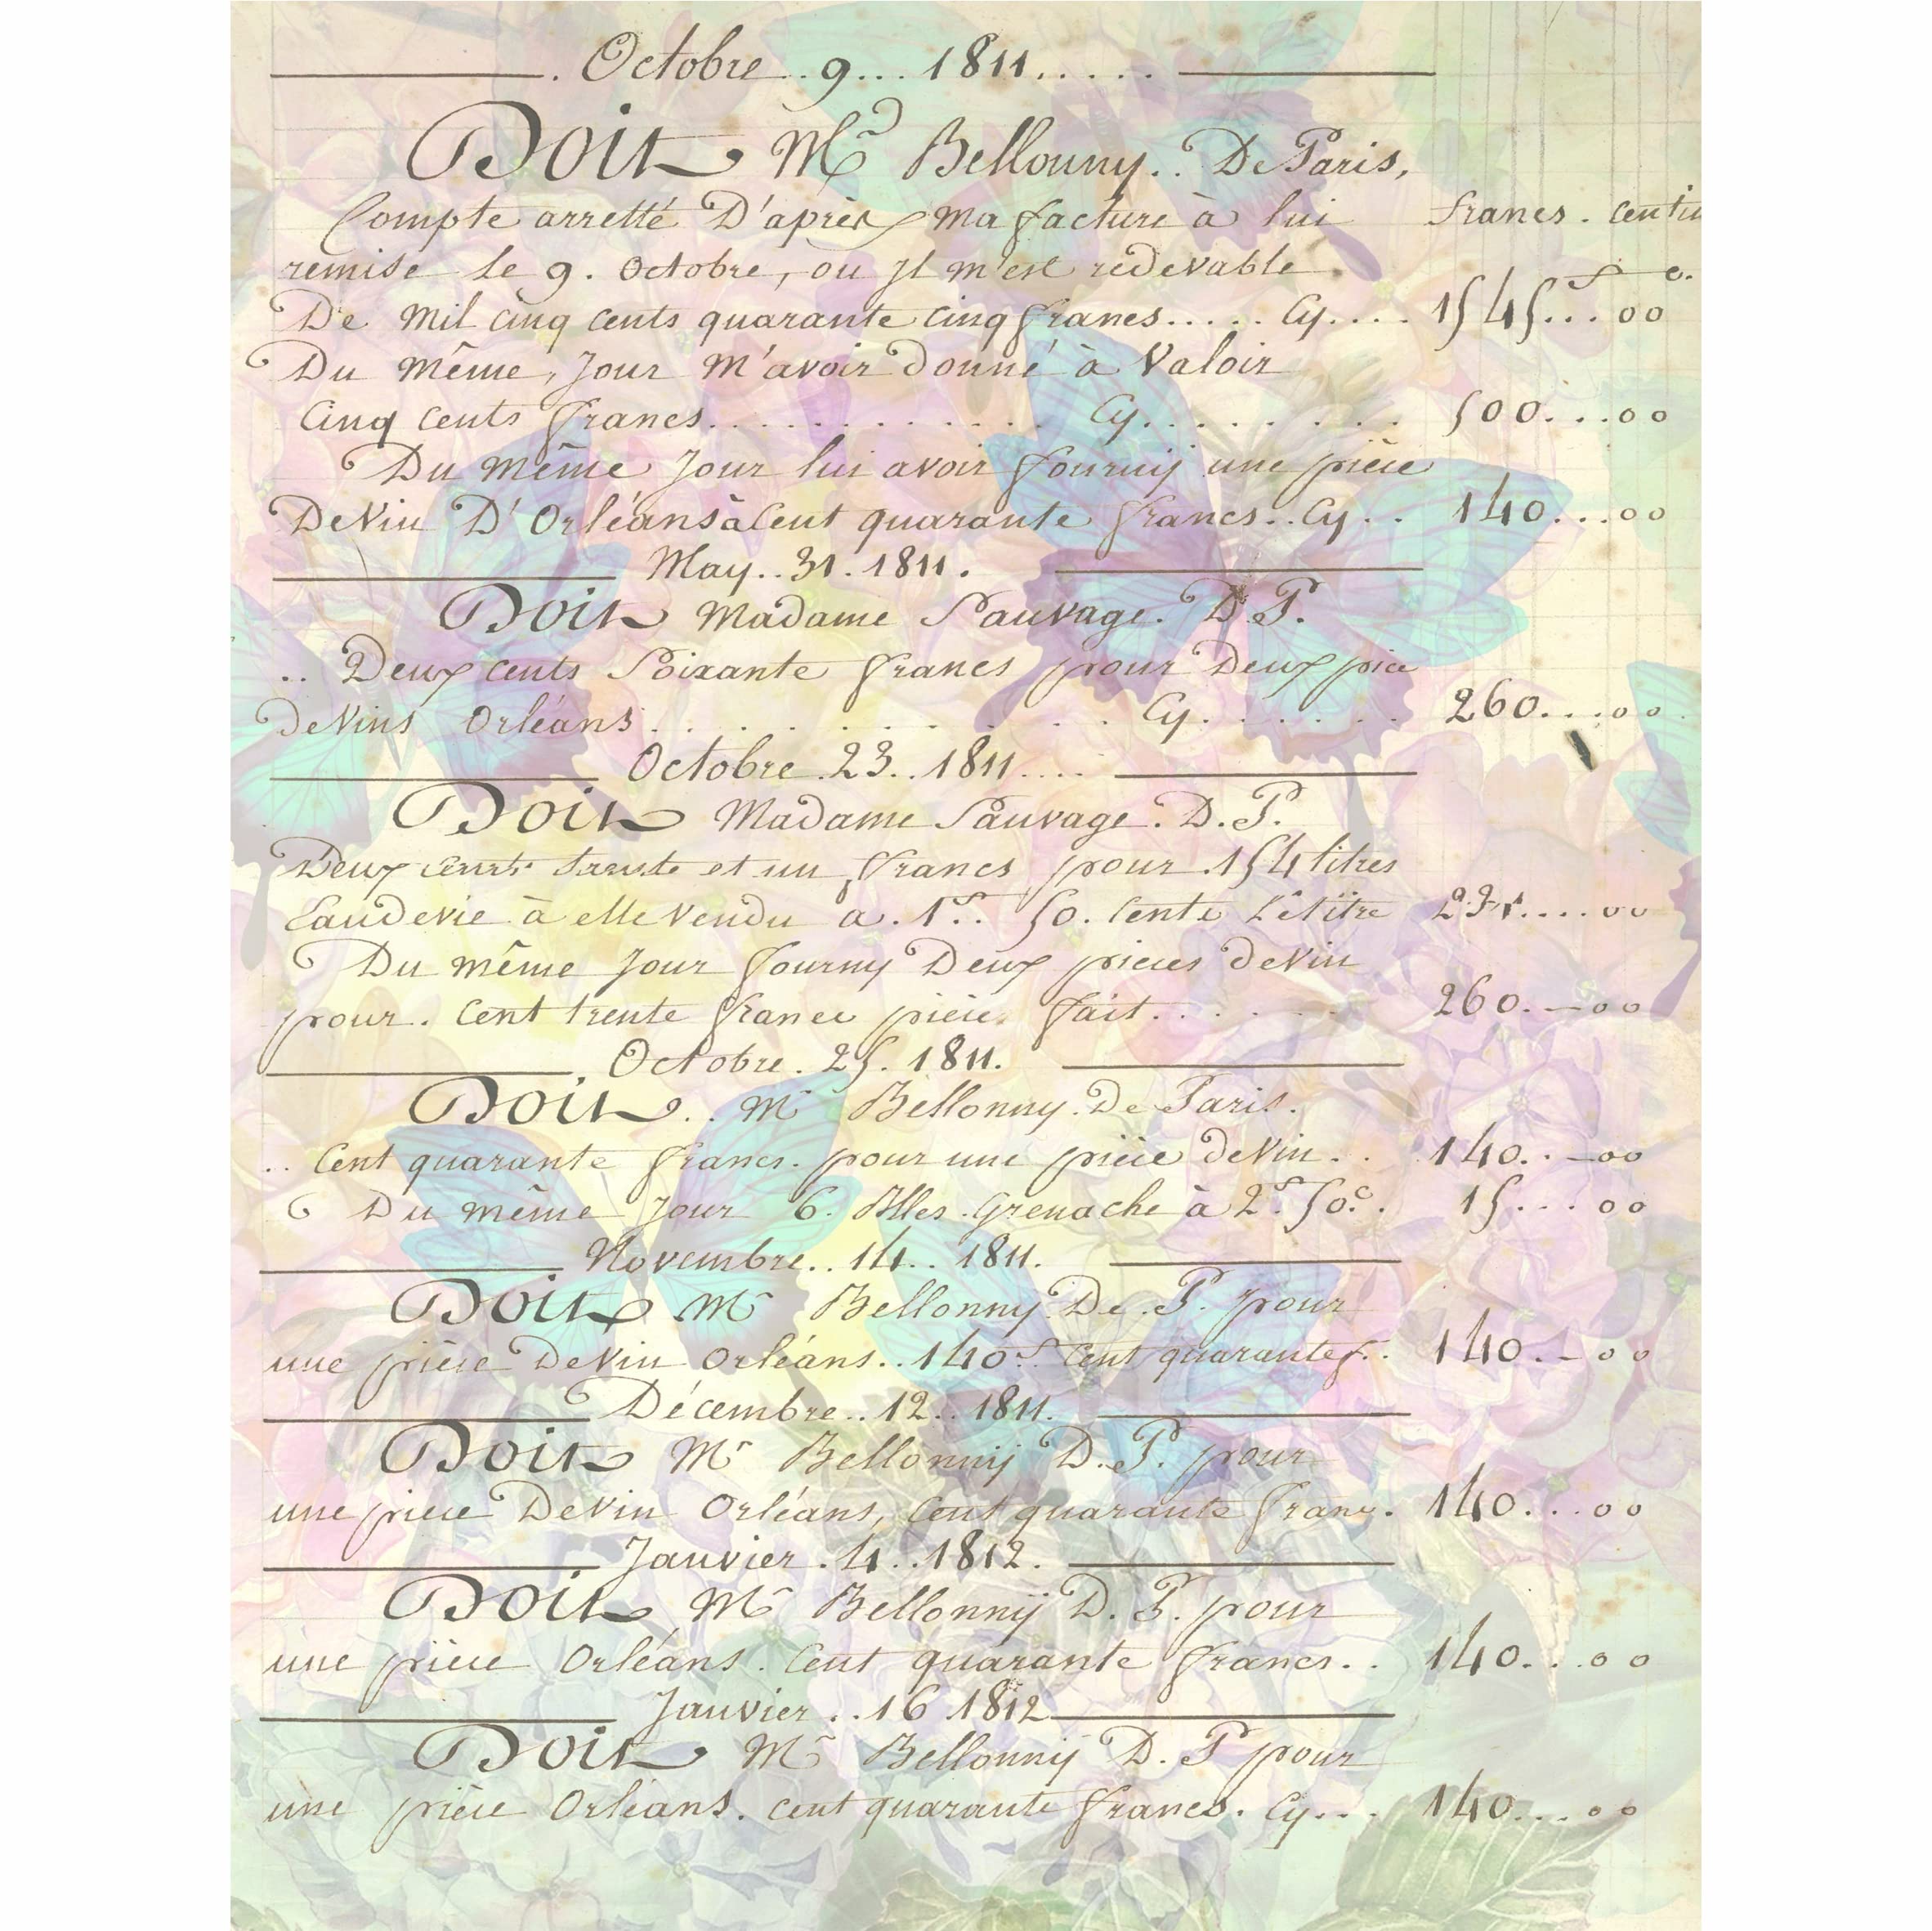 Octobre..9...1811.....
Doit Mr Bellonny.. De Paris,
Compte arretté D'après ma facture à lui francs. centi
remise le 9. Octobre, ou Jl m'est redevable.
De Mil cinq cents quarante cinq francs..... Cy.... 1545...00
Du même, Jour m'avoir donné à Valoir
Cinq cents francs............ Cy......... 500...00
Du même Jour lui avoir fourny une pièce
De Vin D'Orléans à Cent quarante francs..Cy.. 140...00
May..31.1811.
Doit Madame Sauvage. D.P.
.. Deux cents Soixante francs pour Deux pice
de Vins Orléans.......... Cy....... 260...00
Octobre.23..1811....
Doit Madame Sauvage. D.P.
Deux cents trente et un francs pour.154 litres
Eaudevie à elle vendu a.1f. 50. Cente Le litre 231....00
Du même Jour fourny Deux pieces de Vin
pour. Cent trente france pièce. fait....... 260.—00
Octobre. 25. 1811.
Doit.. Mr Bellonny. De Paris.
.. Cent quarante francs. pour une pièce de Vin.. 140..—00
Du même Jour 6. Blles. Grenache à 2f. 50c. 15...00
Novembre.. 14.. 1811.
Doit Mr Bellonny De. P. pour
une pièce De Vin Orléans..140f. Cent quarante f.. 140.-00
Décembre..12..1811.
Doit Mr Bellonny D.P. pour
une piece De Vin Orléans, Cent quarante franc. 140...00
Janvier.4..1812.
Doit Mr Bellonny D.P. pour
une piece Orléans. Cent quarante francs.. 140...00
Janvier..16 1812
Doit Mr Bellonny D. P pour
une pièce Orléans. cent quarante francs. Cy... 140....00